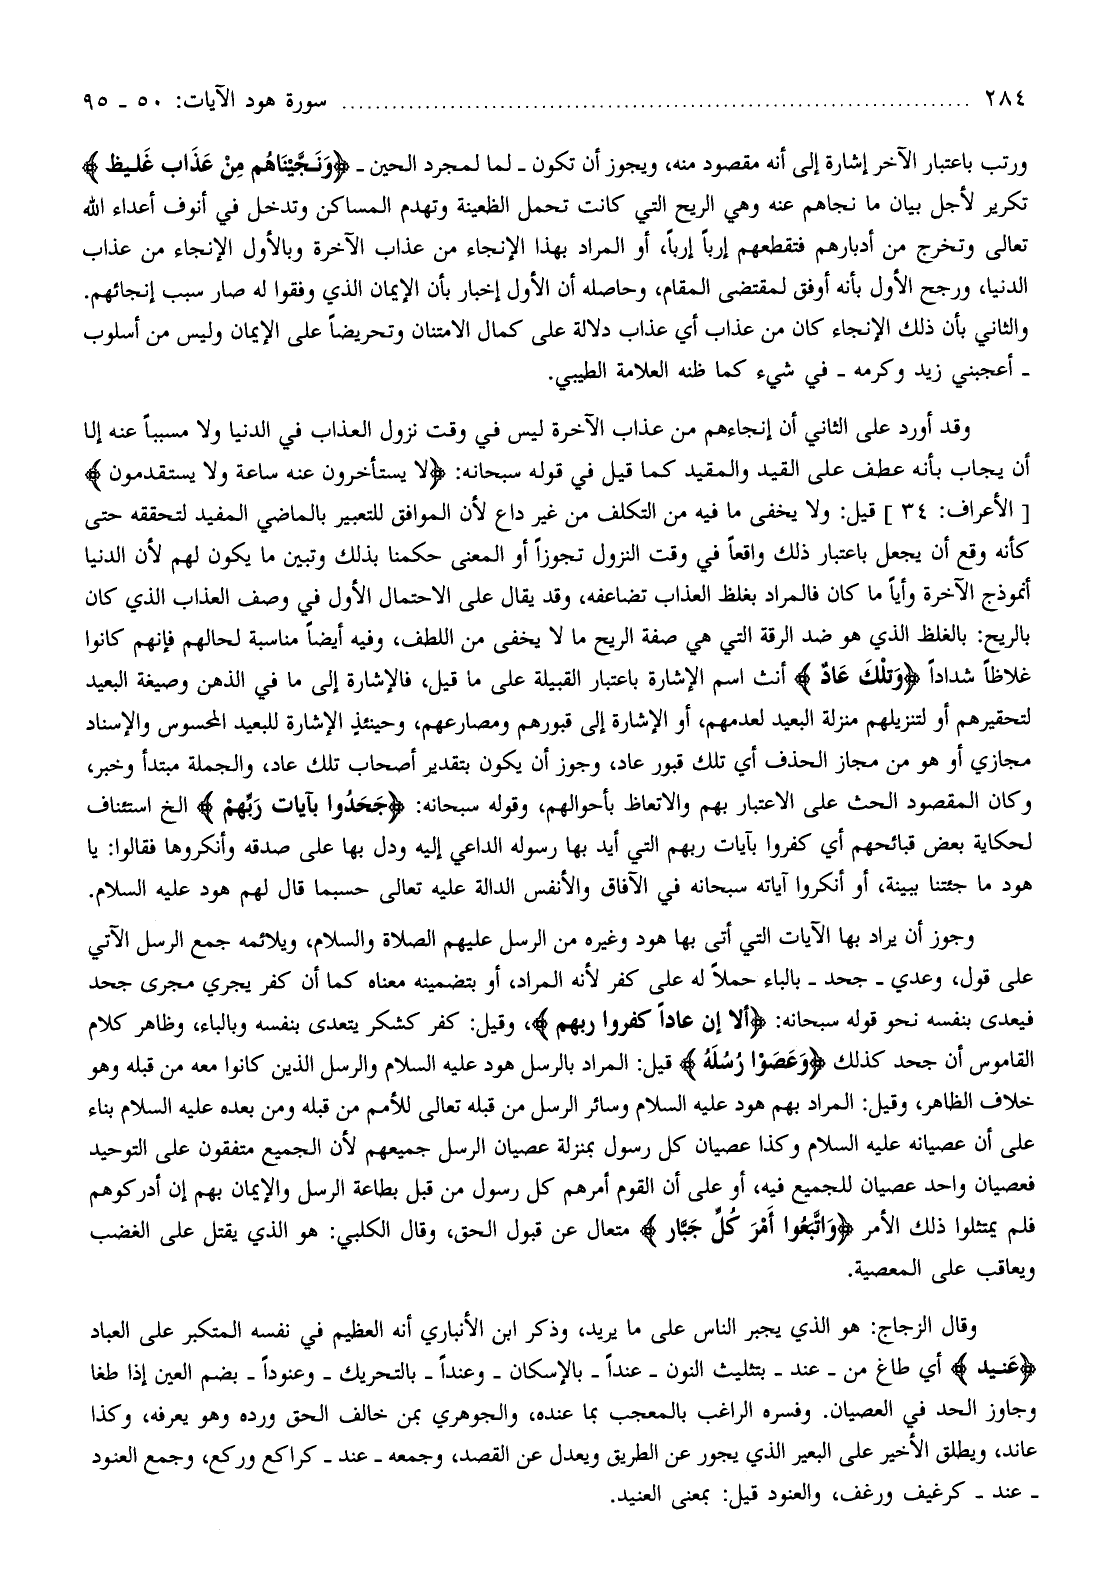 ٢٨٤ ........................................................................... سورة هود الآيات: ٥٠ ـ ٩٥
ورتب باعتبار الآخر إشارة إلى أنه مقصود منه، ويجوز أن تكون ـ لما لمجرد الحين ـ ﴿وَنَجَّيْنَاهُم مِنْ عَذَاب غَليظ﴾
تكرير لأجل بيان ما نجاهم عنه وهي الريح التي كانت تحمل الظعينة وتهدم المساكن وتدخل في أنوف أعداء الله
تعالى وتخرج من أدبارهم فتقطعهم إرباً إرباً، أو المراد بهذا الإنجاء من عذاب الآخرة وبالأول الإنجاء من عذاب
الدنيا، ورجح الأول بأنه أوفق لمقتضى المقام، وحاصله أن الأول إخبار بأن الإيمان الذي وفقوا له صار سبب إنجائهم.
والثاني بأن ذلك الإنجاء كان من عذاب أي عذاب دلالة على كمال الامتنان وتحريضاً على الإيمان وليس من أسلوب
ـ أعجبني زيد وكرمه ـ في شيء كما ظنه العلامة الطيبي.
وقد أورد على الثاني أن إنجاءهم من عذاب الآخرة ليس في وقت نزول العذاب في الدنيا ولا مسبباً عنه إلا
أن يجاب بأنه عطف على القيد والمقيد كما قيل في قوله سبحانه: ﴿لا يستأخرون عنه ساعة ولا يستقدمون﴾
[ الأعراف: ٣٤ ] قيل: ولا يخفى ما فيه من التكلف من غير داع لأن الموافق للتعبير بالماضي المفيد لتحققه حتى
كأنه وقع أن يجعل باعتبار ذلك واقعاً في وقت النزول تجوزاً أو المعنى حكمنا بذلك وتبين ما يكون لهم لأن الدنيا
أنموذج الآخرة وأياً ما كان فالمراد بغلظ العذاب تضاعفه، وقد يقال على الاحتمال الأول في وصف العذاب الذي كان
بالريح: بالغلظ الذي هو ضد الرقة التي هي صفة الريح ما لا يخفى من اللطف، وفيه أيضاً مناسبة لحالهم فإنهم كانوا
غلاظاً شداداً ﴿وَتلْكَ عَادٌ﴾ أنث اسم الإشارة باعتبار القبيلة على ما قيل، فالإشارة إلى ما في الذهن وصيغة البعيد
لتحقيرهم أو لتنزيلهم منزلة البعيد لعدمهم، أو الإشارة إلى قبورهم ومصارعهم، وحينئذٍ الإشارة للبعيد المحسوس والإسناد
مجازي أو هو من مجاز الحذف أي تلك قبور عاد، وجوز أن يكون بتقدير أصحاب تلك عاد، والجملة مبتدأ وخبر،
وكان المقصود الحث على الاعتبار بهم والاتعاظ بأحوالهم، وقوله سبحانه: ﴿جَحَدُوا بآيات رَبِّهمْ﴾ الخ استئناف
لحكاية بعض قبائحهم أي كفروا بآيات ربهم التي أيد بها رسوله الداعي إليه ودل بها على صدقه وأنكروها فقالوا: يا
هود ما جئتنا ببينة، أو أنكروا آياته سبحانه في الآفاق والأنفس الدالة عليه تعالى حسبما قال لهم هود عليه السلام.
وجوز أن يراد بها الآيات التي أتى بها هود وغيره من الرسل عليهم الصلاة والسلام، ويلائمه جمع الرسل الآتي
على قول، وعدي ـ جحد ـ بالباء حملاً له على كفر لأنه المراد، أو بتضمينه معناه كما أن كفر يجري مجرى جحد
فيعدى بنفسه نحو قوله سبحانه: ﴿ألا إن عاداً كفروا ربهم﴾، وقيل: كفر كشكر يتعدى بنفسه وبالباء، وظاهر كلام
القاموس أن جحد كذلك ﴿وَعَصَوْا رُسُلَهُ﴾ قيل: المراد بالرسل هود عليه السلام والرسل الذين كانوا معه من قبله وهو
خلاف الظاهر، وقيل: المراد بهم هود عليه السلام وسائر الرسل من قبله تعالى للأمم من قبله ومن بعده عليه السلام بناء
على أن عصيانه عليه السلام وكذا عصيان كل رسول بمنزلة عصيان الرسل جميعهم لأن الجميع متفقون على التوحيد
فعصيان واحد عصيان للجميع فيه، أو على أن القوم أمرهم كل رسول من قبل بطاعة الرسل والإيمان بهم إن أدركوهم
فلم يمتثلوا ذلك الأمر ﴿وَاتَّبَعُوا أَمْرَ كُلِّ جَبَّار﴾ متعال عن قبول الحق، وقال الكلبي: هو الذي يقتل على الغضب
ويعاقب على المعصية.
وقال الزجاج: هو الذي يجبر الناس على ما يريد، وذكر ابن الأنباري أنه العظيم في نفسه المتكبر على العباد
﴿عَنيد﴾ أي طاغ من ـ عند ـ بتثليث النون ـ عنداً ـ بالإسكان ـ وعنداً ـ بالتحريك ـ وعنوداً ـ بضم العين إذا طغا
وجاوز الحد في العصيان. وفسره الراغب بالمعجب بما عنده، والجوهري بمن خالف الحق ورده وهو يعرفه، وكذا
عاند، ويطلق الأخير على البعير الذي يجور عن الطريق ويعدل عن القصد، وجمعه ـ عند ـ كراكع وركع، وجمع العنود
ـ عند ـ كرغيف ورغف، والعنود قيل: بمعنى العنيد.